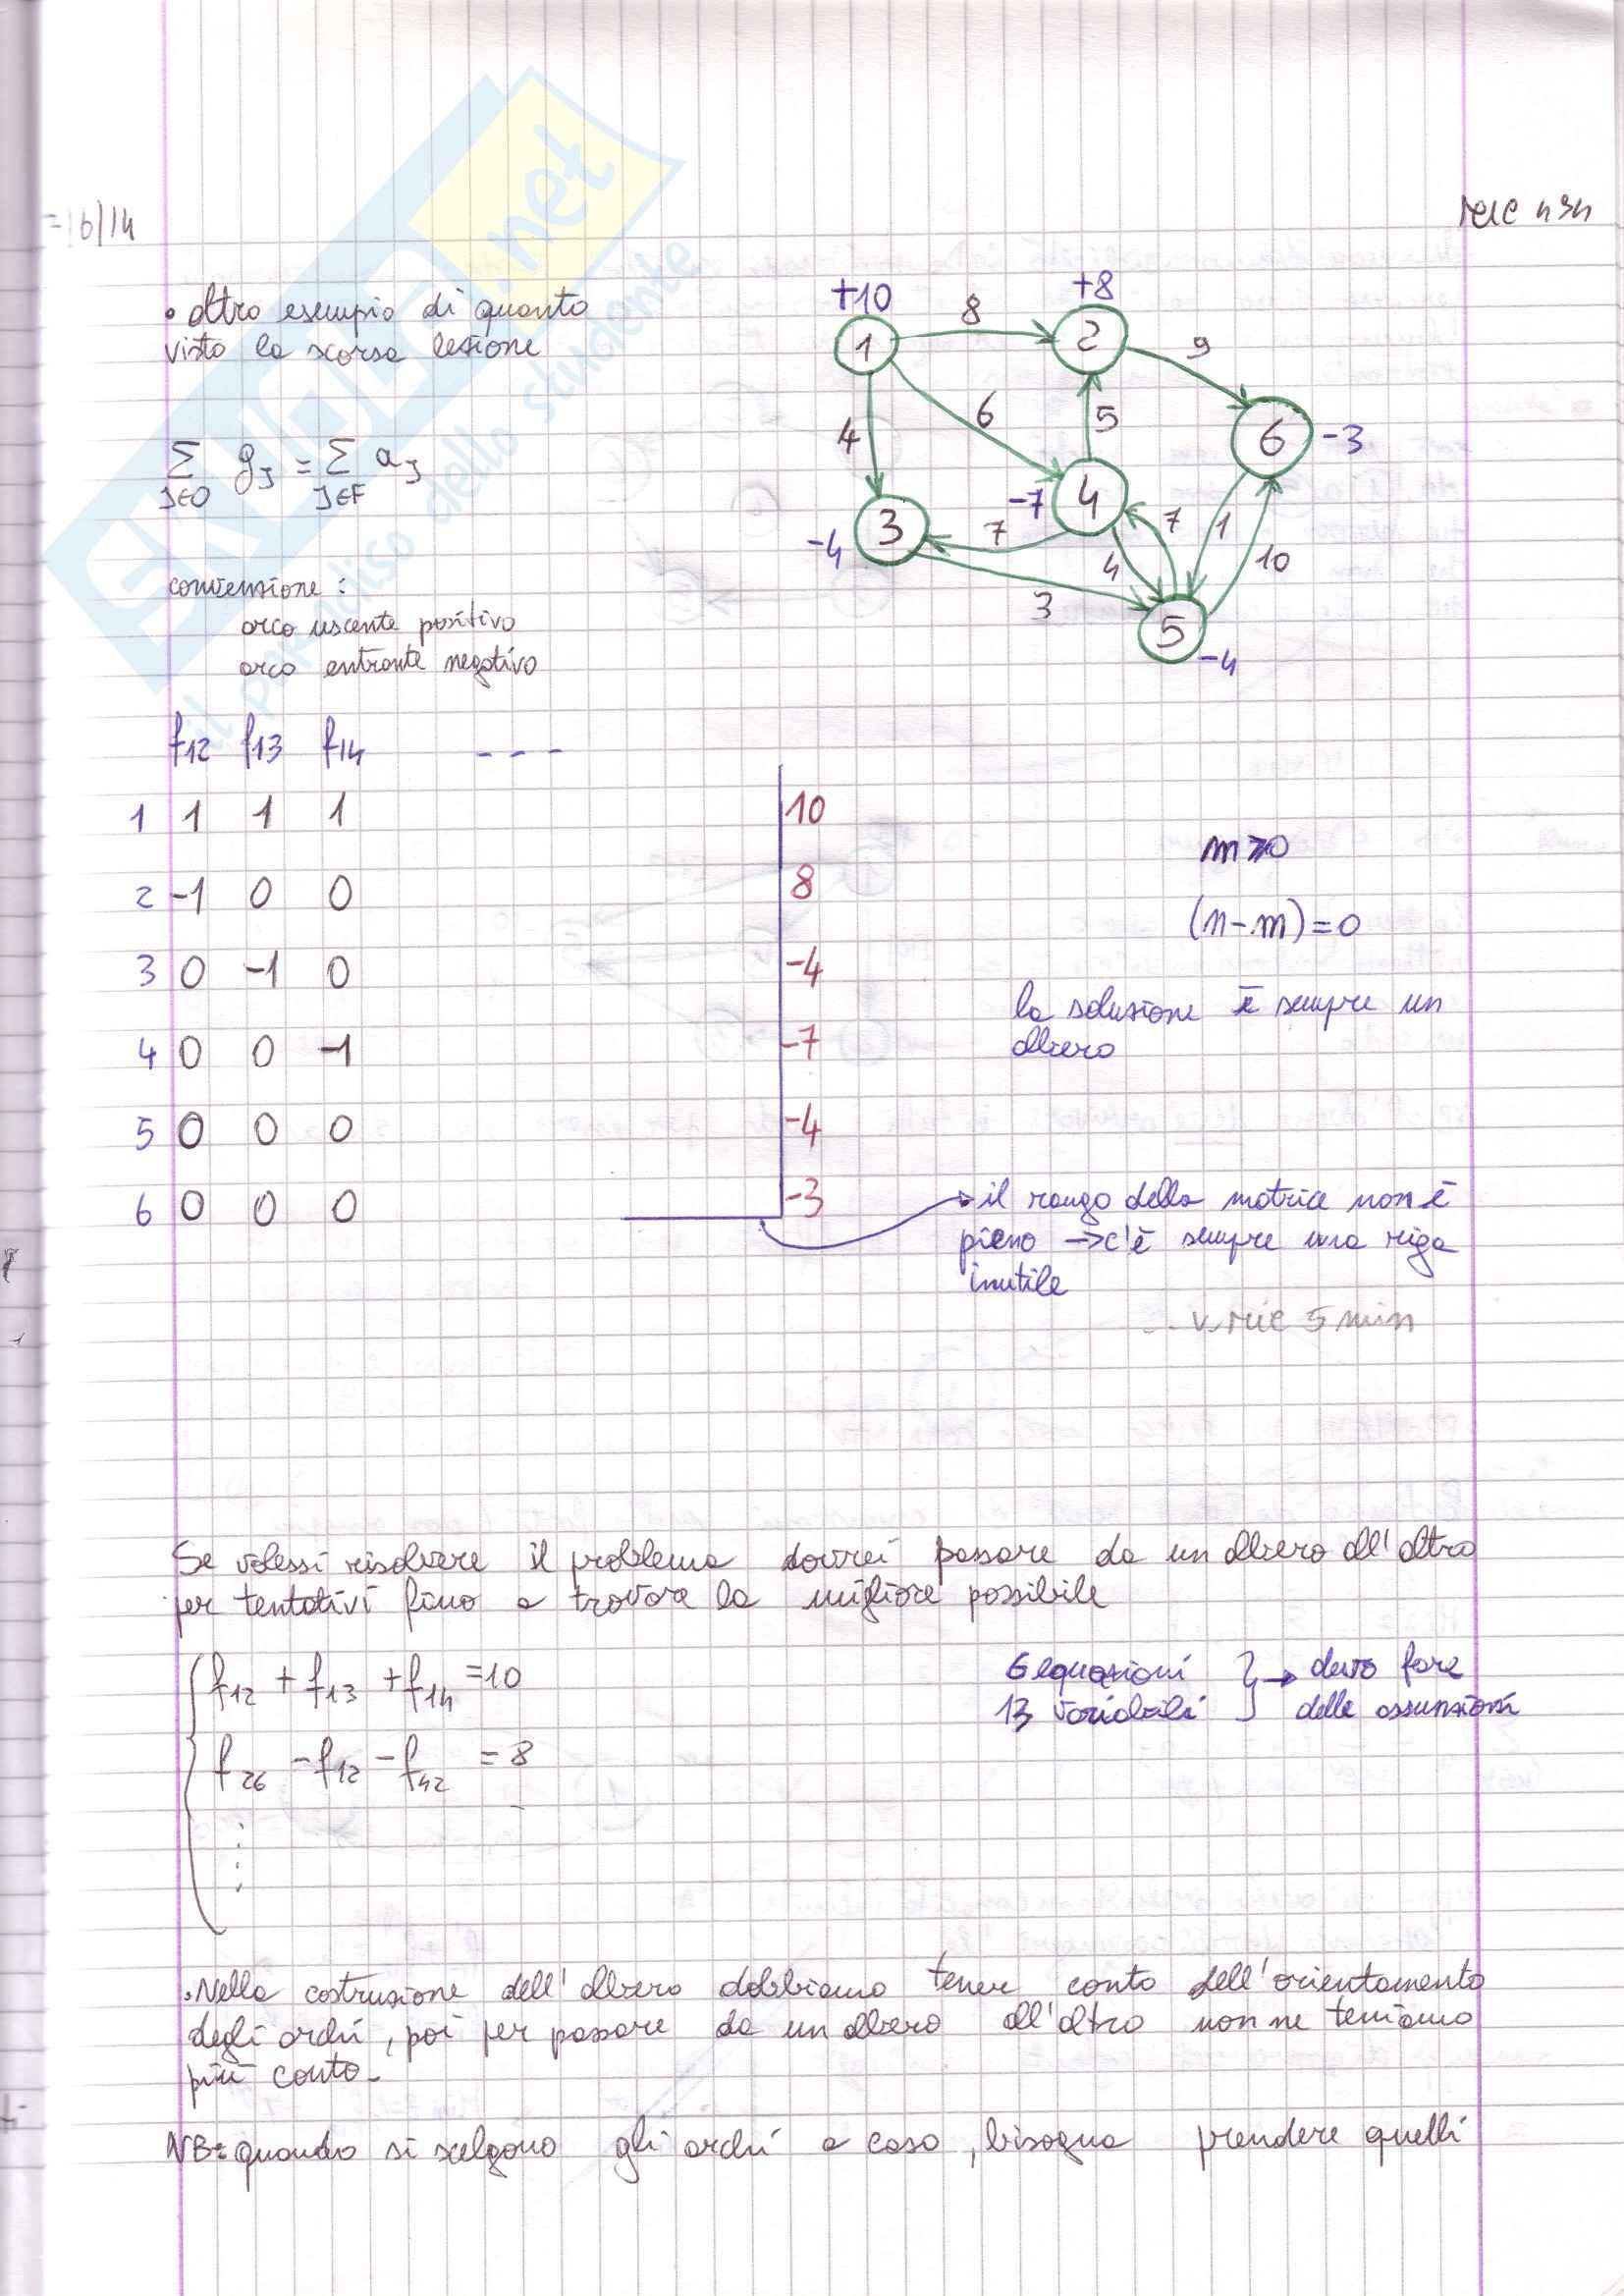 6/14
• altro esempio di quanto
visto la scorsa lezione
+10
+8
1
8
2
9
4
6
5
6
-3
-7
4
3
-4
7
7
1
4
10
3
5
-4
Σ gJ = Σ aJ
J∈O J∈F
convenzione :
arco uscente positivo
arco entrante negativo
f12 f13 f14 - - -
1 1 1 1 10
2 -1 0 0 8
3 0 -1 0 -4
4 0 0 -1 -7
5 0 0 0 -4
6 0 0 0 -3
(n-m)=0
la soluzione è sempre un
albero
→ il rango della matrice non è
pieno → c'è sempre una riga
inutile
5 min
Se volessi risolvere il problema dovrei passare da un albero all'altro
per tentativi fino a trovare la migliore possibile
f12 + f13 + f14 = 10
f26 - f12 - f42 = 8
6 equazioni
13 variabili
} → devo fare
delle assunzioni
• Nella costruzione dell'albero dobbiamo tener conto dell'orientamento
degli archi, poi per passare da un albero all'altro non ne teniamo
più conto.
NB: quando si scelgono gli archi a caso, bisogna prendere quelli
SKUOLA.net
il paradiso dello studente